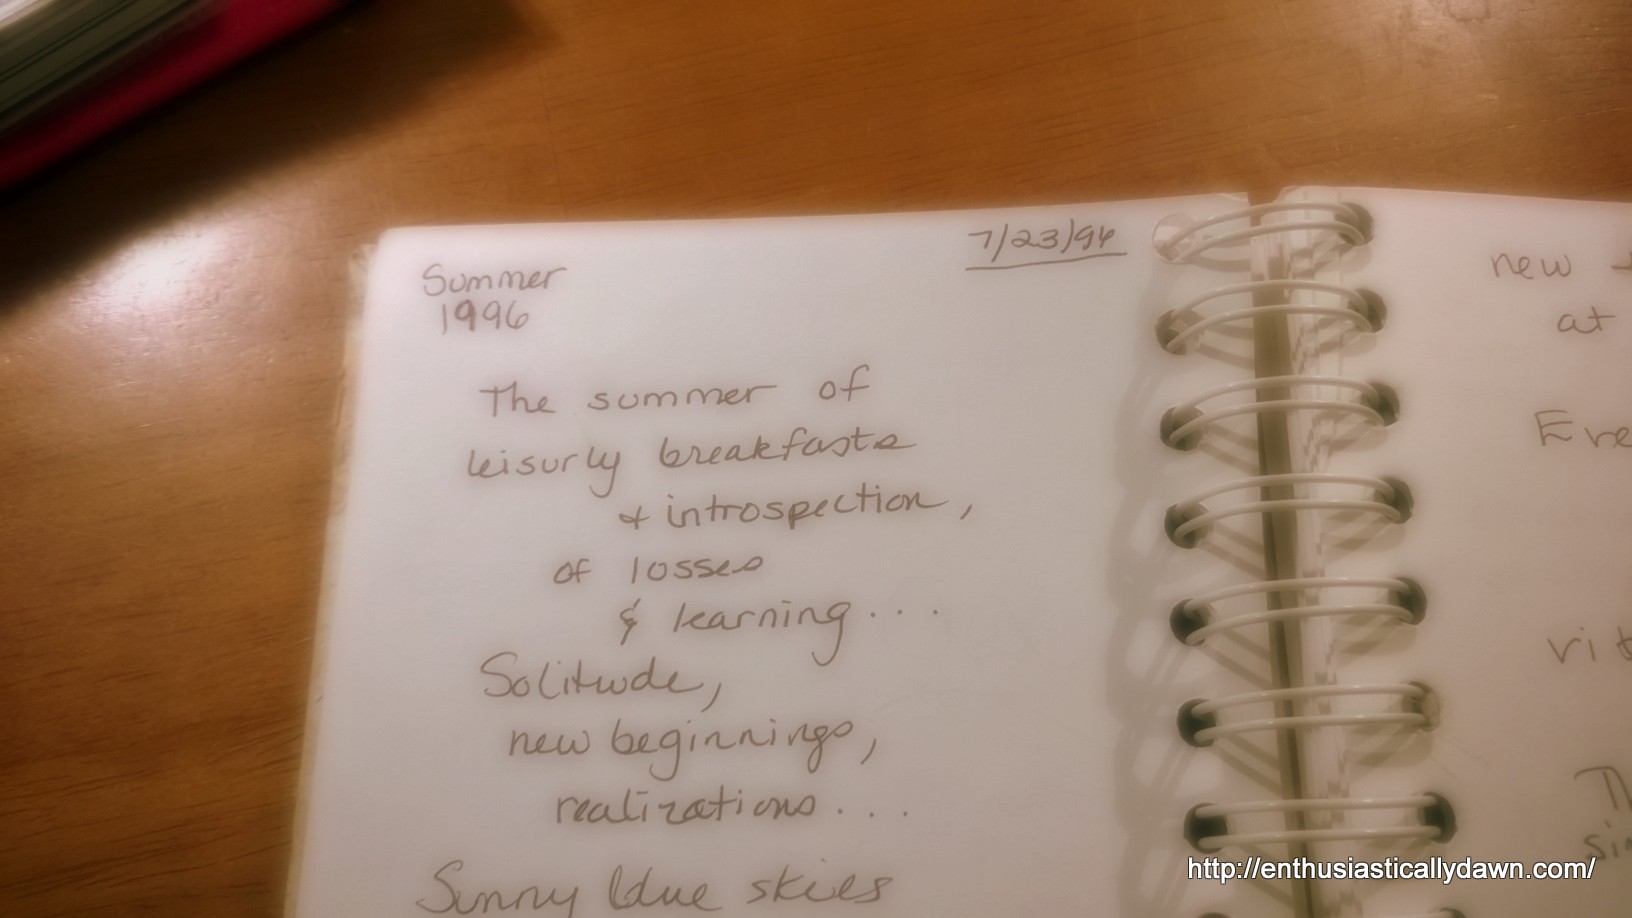 Summer
1996
7/23/96
The summer of
leisurly breakfasts
& introspection,
of losses
& learning...
Solitude,
new beginnings,
realizations...
Sunny blue skies
new
at
http://enthusiasticallydawn.com/